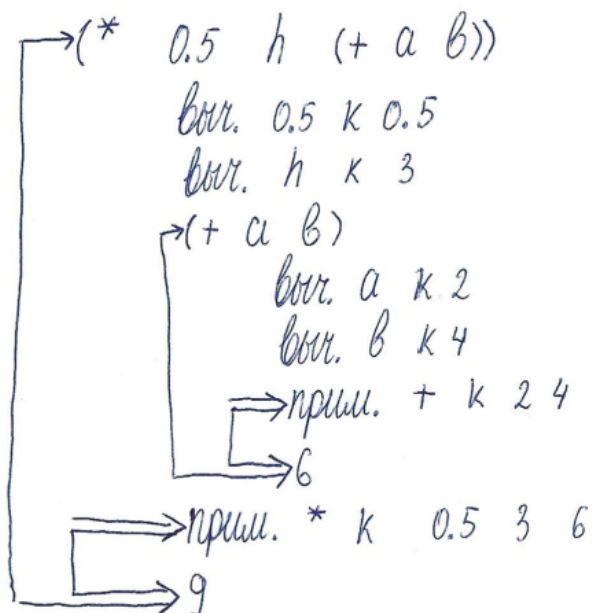 (* 0.5 h (+ a b))
выч. 0.5 к 0.5
выч. h к 3
(+ a b)
выч. a к 2
выч. b к 4
прим. + к 2 4
6
прим. * к 0.5 3 6
9